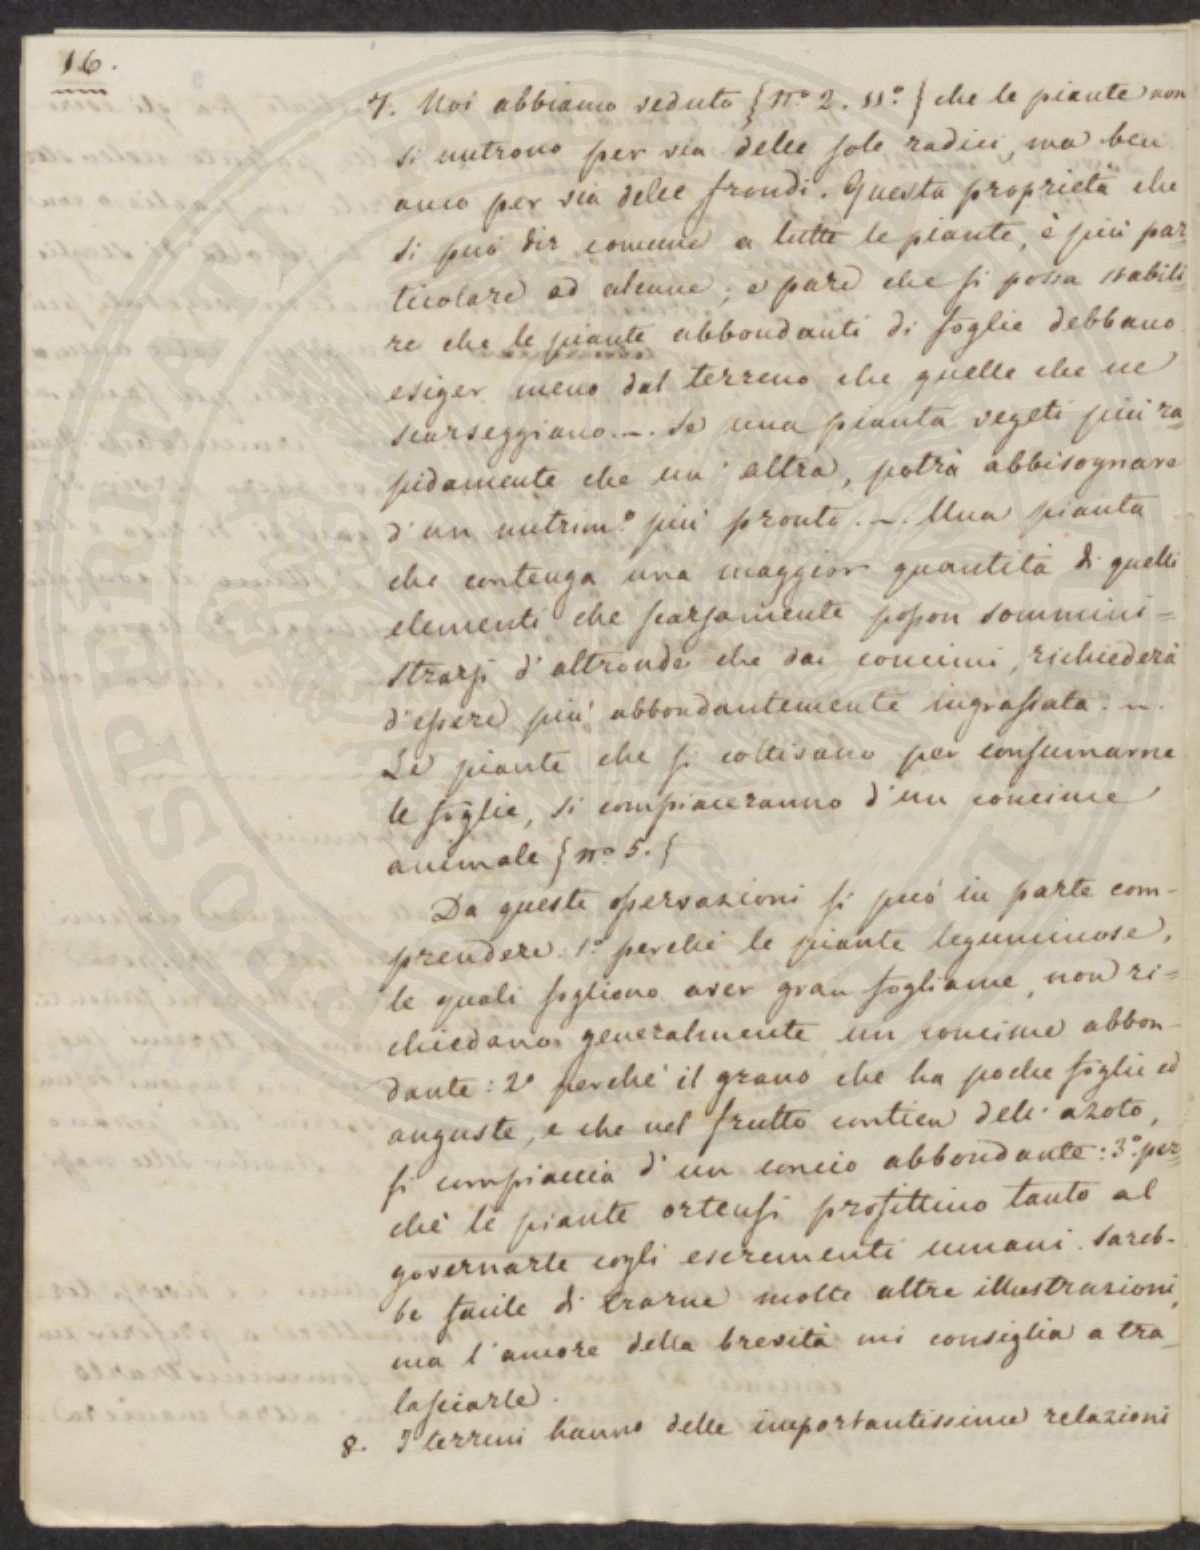 16.
7. Noi abbiamo veduto { nº 2. 11º } che le piante non
si nutrono per via delle sole radici, ma ben
anco per via delle frondi. Questa proprietà che
si può dir comune a tutte le piante, è più par=
ticolare ad alcune; e pare che si possa stabili=
re che le piante abbondanti di foglie debbano
esiger meno dal terreno che quelle che ne
scarseggiano. —. Se una pianta vegeti più ra=
pidamente che un' altra, potrà abbisognare
d'un nutrimº più pronto. —. Una pianta
che contenga una maggior quantità di quelli
elementi che scarsamente posson sommini=
strarsi d'altronde che dai concimi, richiederà
d'essere più abbondantemente ingrassata. —.
Le piante che si coltivano per consumarne
le foglie, si compiaceranno d'un concime
animale { nº 5. }
Da queste osservazioni si può in parte com-
prendere. 1º perchè le piante leguminose,
le quali sogliono aver gran fogliame, non ri=
chiedano generalmente un concime abbon-
dante: 2º perchè il grano che ha poche foglie ed
anguste, e che nel frutto contien dell' azoto,
si compiaccia d'un concio abbondante: 3º per=
chè le piante ortensi profittino tanto al
governarle cogli escrementi umani. Sareb-
be facile di trarne molte altre illustrazioni,
ma l'amore della brevità mi consiglia a tra=
lasciarle.
8. I terreni hanno delle importantissime relazioni
PROSPERITATI PUBLICAE